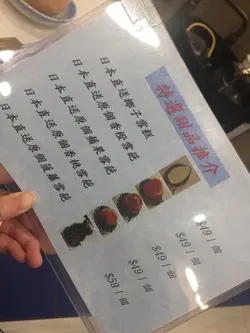 特選甜品推介
日本直送椰子雪糕
$49/個
日本直送原個香橙雪葩
$49/個
日本直送原個蘋果雪葩
$49/個
日本直送原個香桃雪葩
$49/個
日本直送原個菠蘿雪葩
$59/個